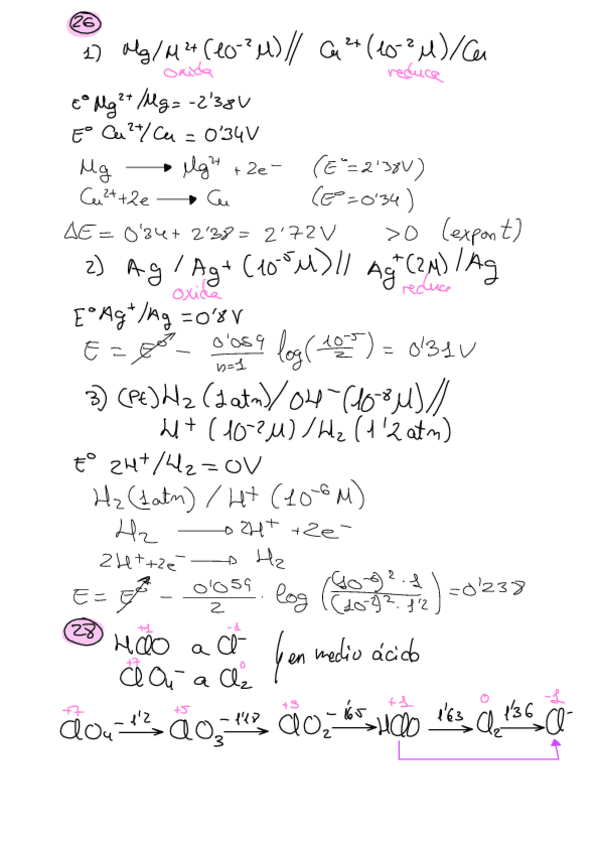 26
1) Mg/M²⁺(10⁻²M)// Cu²⁺(10⁻²M)/Cu
oxida reduce
E°Mg²⁺/Mg=-2'38V
E° Cu²⁺/Cu = 0'34V
Mg → Mg²⁺ + 2e⁻ (E°=2'38V)
Cu²⁺+2e → Cu (E°=0'34)
ΔE= 0'34+ 2'38= 2'72V >0 (expont)
2) Ag / Ag⁺ (10⁻⁵M)// Ag⁺(2M)/Ag
oxida reduce
E°Ag⁺/Ag =0'8V
E = E° - 0'059/n=1 log(10⁻⁵/2) = 0'31V
3) (Pt)H₂(1atm)/OH⁻(10⁻⁸M)//
H⁺(10⁻²M)/H₂(1'2atm)
E° 2H⁺/H₂=0V
H₂(1atm) / H⁺ (10⁻⁶M)
H₂ → 2H⁺ +2e⁻
2H⁺+2e⁻ → H₂
E= E° - 0'059/2 · log ((10⁻⁶)²·1/(10⁻²)²·1'2) =0'238
28
+1 -1
HClO a Cl⁻
+7 0
ClO₄⁻ a Cl₂ } en medio ácido
+7 +5 +3 +1 0 -1
ClO₄⁻ 1'2 → ClO₃⁻ 1'18 → ClO₂⁻ 1'65 → HClO 1'63 → Cl₂ 1'36 → Cl⁻